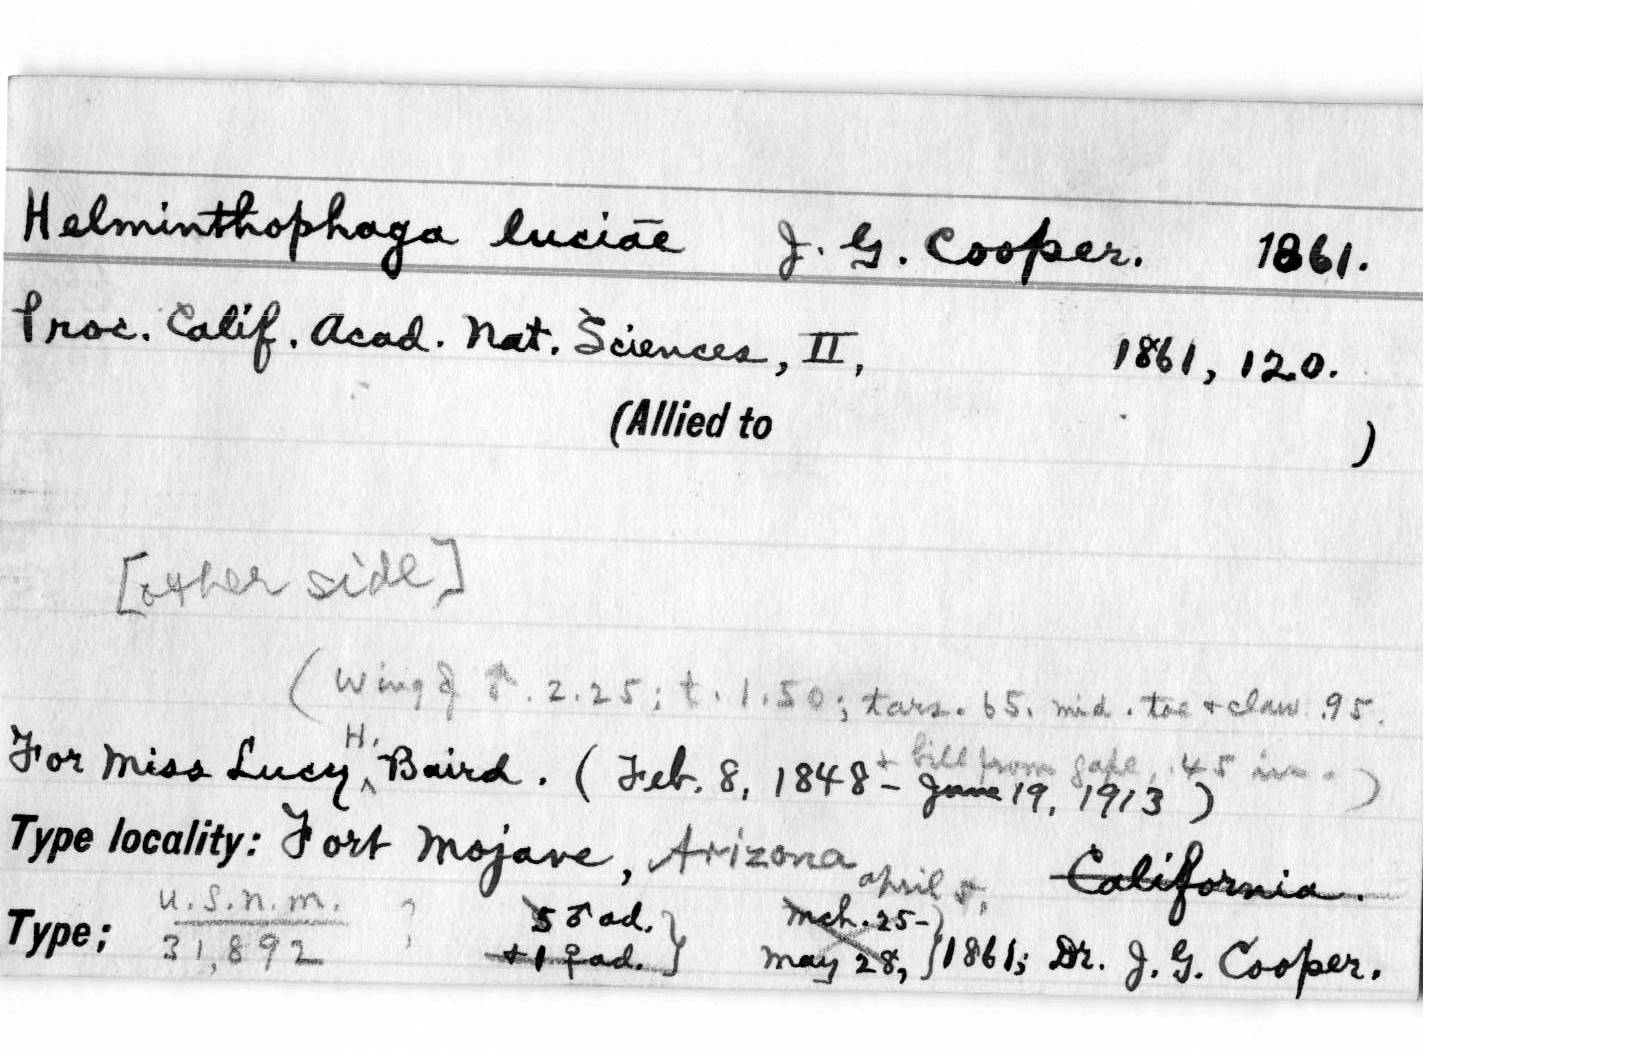 Helminthophaga luciae J. G. Cooper. 1861.
Proc. Calif. Acad. Nat. Sciences, II, 1861, 120.
(Allied to )
[other side]
(Wing of ♂. 2.25; t. 1.50; tars. .65. mid. toe + claw .95.
+ bill from gape, .45 in.)
For Miss Lucy H. Baird. (Feb. 8, 1848 - June 19, 1913)
Type locality: Fort Mojave, Arizona California.
april 5,
Type; U.S.N.M. 31,892 ? 5 ♂ ad. + 1 ♀ ad.} Mch. 25- May 28,} 1861; Dr. J. G. Cooper.